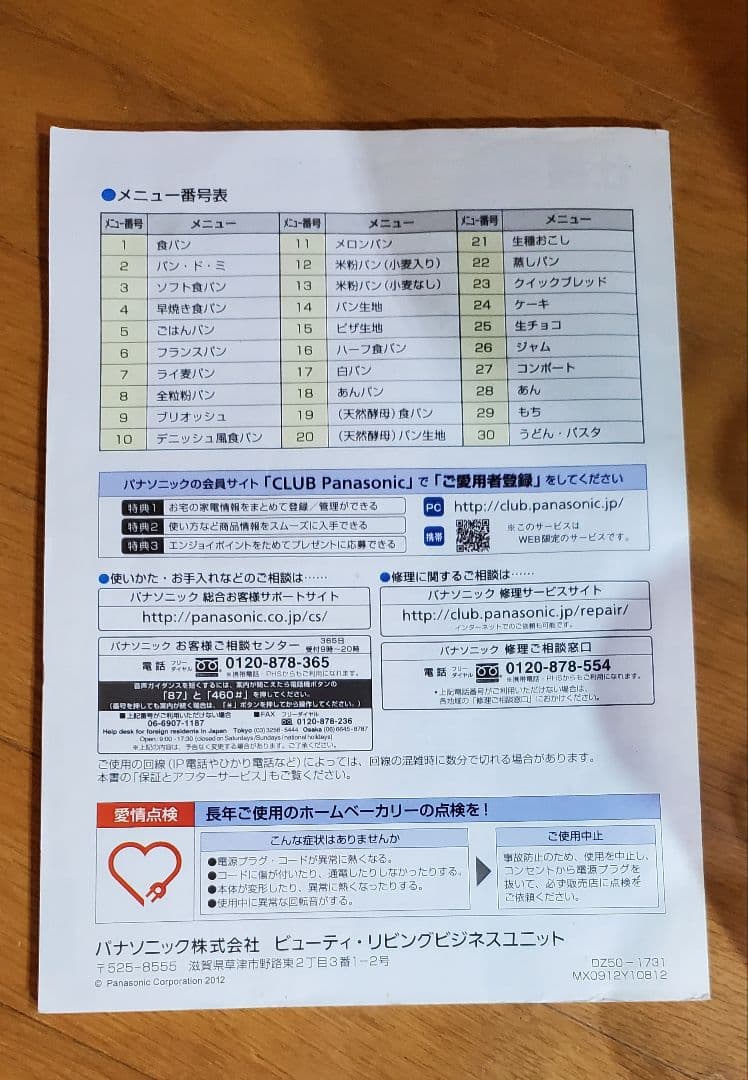 ●メニュー番号表
メニュー番号 メニュー メニュー番号 メニュー メニュー番号 メニュー
1 食パン 11 メロンパン 21 生種おこし
2 パン・ド・ミ 12 米粉パン(小麦入り) 22 蒸しパン
3 ソフト食パン 13 米粉パン(小麦なし) 23 クイックブレッド
4 早焼き食パン 14 パン生地 24 ケーキ
5 ごはんパン 15 ピザ生地 25 生チョコ
6 フランスパン 16 ハーフ食パン 26 ジャム
7 ライ麦パン 17 白パン 27 コンポート
8 全粒粉パン 18 あんパン 28 あん
9 ブリオッシュ 19 (天然酵母)食パン 29 もち
10 デニッシュ風食パン 20 (天然酵母)パン生地 30 うどん・パスタ
パナソニックの会員サイト「CLUB Panasonic」で「ご愛用者登録」をしてください
特典1 お宅の家電情報をまとめて登録/管理ができる
特典2 使い方など商品情報をスムーズに入手できる
特典3 エンジョイポイントをためてプレゼントに応募できる
PC http://club.panasonic.jp/
携帯 ※このサービスは
WEB限定のサービスです。
●使いかた・お手入れなどのご相談は……
パナソニック 総合お客様サポートサイト
http://panasonic.co.jp/cs/
パナソニック お客様ご相談センター 365日
受付9時~20時
電話 フリーダイヤル 0120-878-365
※携帯電話・PHSからもご利用になれます。
音声ガイダンスを短くするには、案内が聞こえたら電話機ボタンの
「87」と「460#」を押してください。
(番号を押しても案内が続く場合は、「#」ボタンを押してから操作してください。)
■上記番号がご利用いただけない場合 ■FAX フリーダイヤル
06-6907-1187 0120-878-236
Help desk for foreign residents in Japan Tokyo (03)3256-5444 Osaka (06)6645-8787
Open : 9:00-17:30 (closed on Saturdays/Sundays/national holidays)
※上記の内容は、予告なく変更する場合があります。ご了承ください。
●修理に関するご相談は……
パナソニック 修理サービスサイト
http://club.panasonic.jp/repair/
インターネットでのご依頼も可能です。
パナソニック 修理ご相談窓口
電話 フリーダイヤル 0120-878-554
※携帯電話・PHSからもご利用になれます。
・上記電話番号がご利用いただけない場合は、
各地域の「修理ご相談窓口」におかけください。
ご使用の回線(IP電話やひかり電話など)によっては、回線の混雑時に数分で切れる場合があります。
本書の「保証とアフターサービス」もご覧ください。
愛情点検 長年ご使用のホームベーカリーの点検を!
こんな症状はありませんか
●電源プラグ・コードが異常に熱くなる。
●コードに傷が付いたり、通電したりしなかったりする。
●本体が変形したり、異常に熱くなったりする。
●使用中に異常な回転音がする。
ご使用中止
事故防止のため、使用を中止し、
コンセントから電源プラグを
抜いて、必ず販売店に点検を
ご依頼ください。
パナソニック株式会社 ビューティ・リビングビジネスユニット
〒525-8555 滋賀県草津市野路東2丁目3番1-2号
© Panasonic Corporation 2012
DZ50-1731
MX0912Y10812